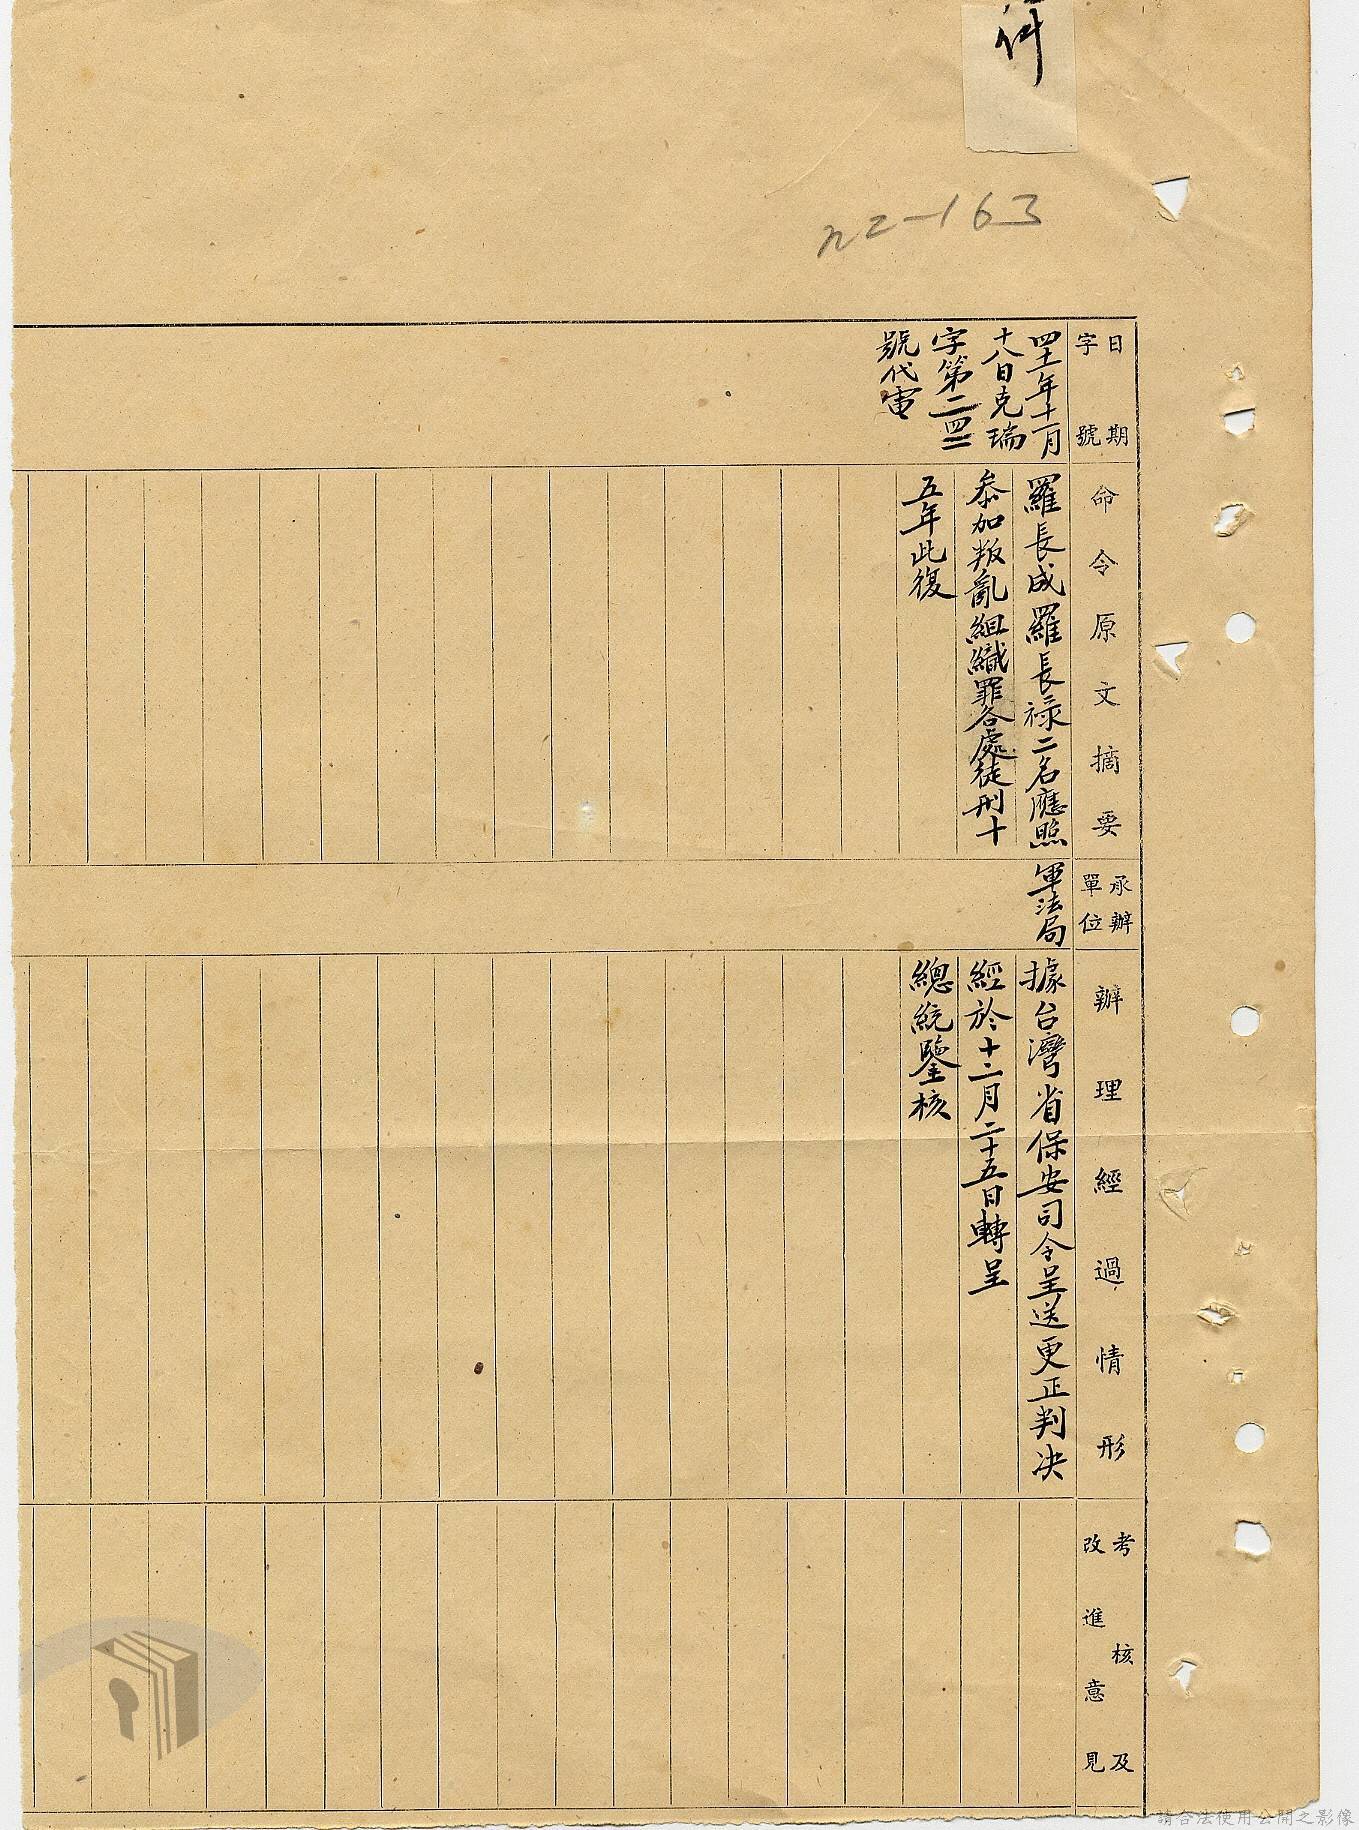 件
n2-163
日期
字號
命令原文摘要
承辦
單位
辦理經過情形
考核及
改進意見
四十一年十一月
十八日克瑞
字第二四二
號代電
羅長成羅長祿二名應照
叅加叛亂組織罪各處徒刑十
五年此復
軍法局
據台灣省保安司令呈送更正判决
經於十二月二十五日轉呈
總統鑒核
請合法使用公開之影像